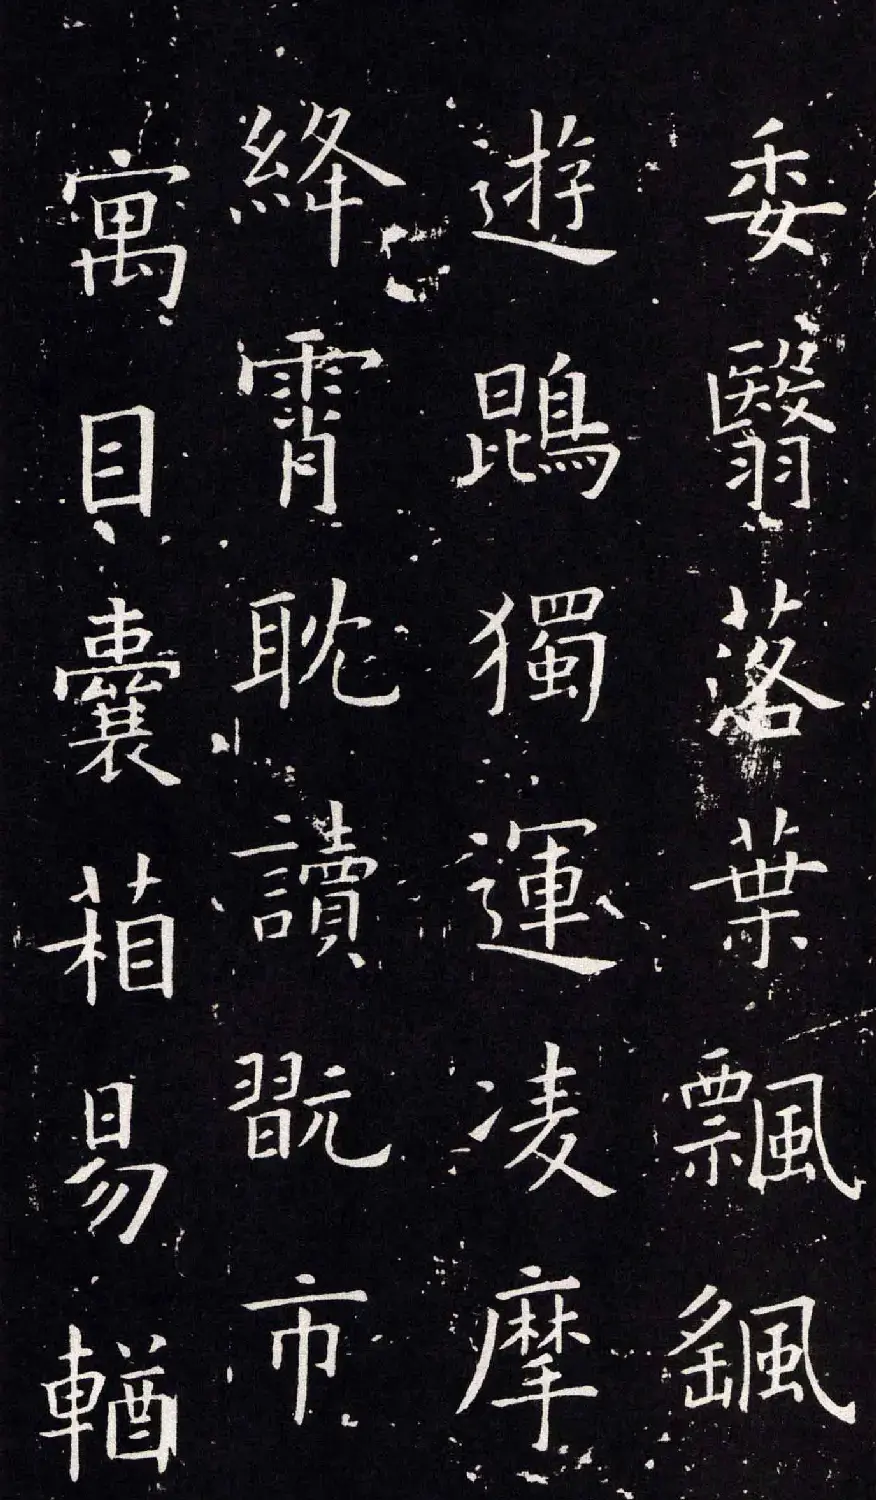 委翳落葉飄飖
遊鵾獨運凌摩
絳霄耽讀翫市
寓目囊葙易輶